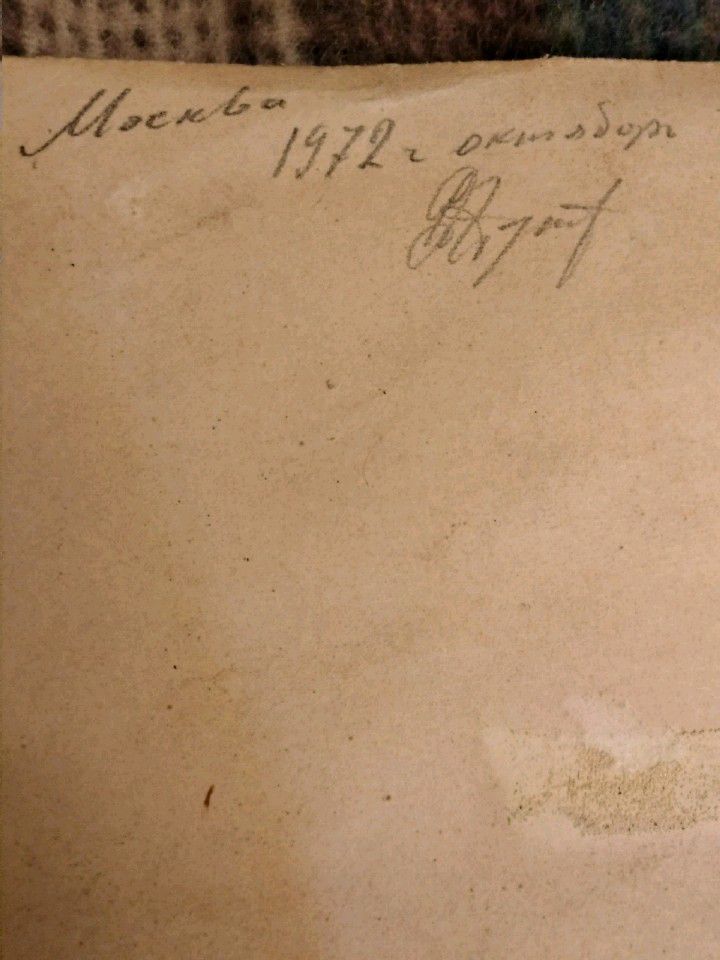 Москва
1972 г октябрь